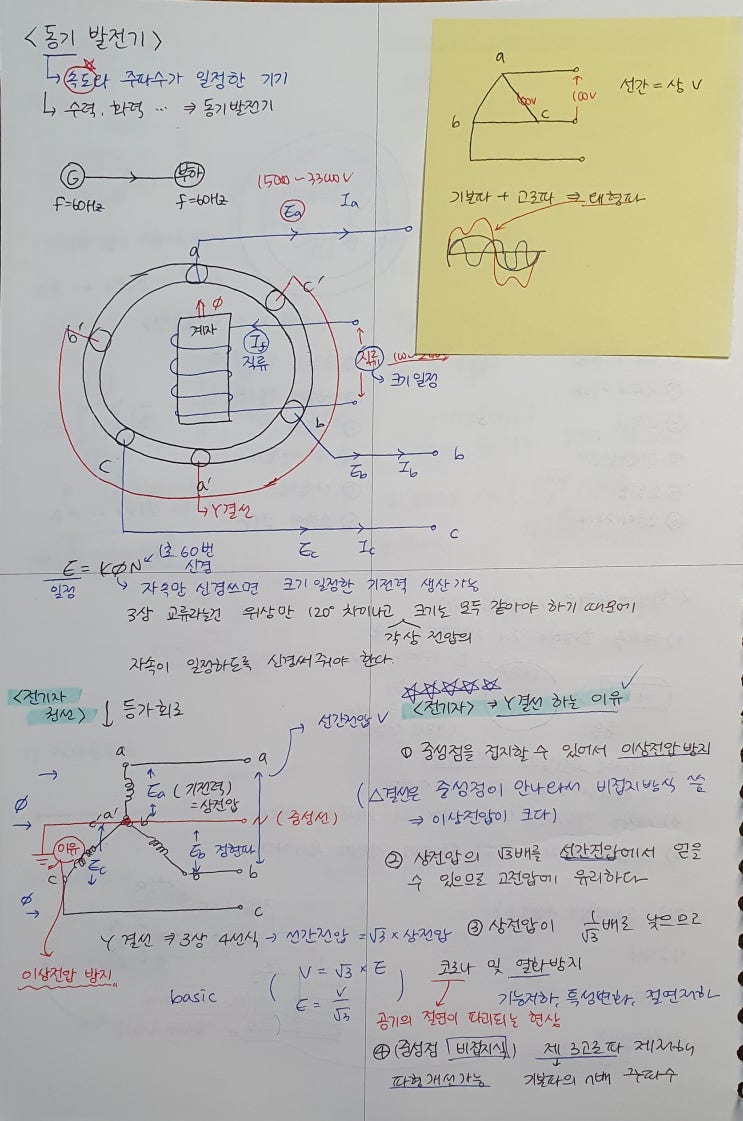 <동기 발전기>
↳ 속도나 주파수가 일정한 기기
↳ 수력, 화력 … ⇒ 동기발전기
G → 부하
f=60Hz f=60Hz
15000~33000V
Ea Ia
a
c'
b'
ϕ
계자
If
직류
직류
→ 크기일정
b
Eb Ib b
c
a'
→Y결선
Ec Ic c
E = KϕN
(초 60번
신경
일정
자속만 신경쓰면 크기 일정한 기전력 생산가능
3상 교류라는건 위상만 120° 차이나고 크기는 모두 같아야 하기 때문에
각상 전압의
자속이 일정하도록 신경써줘야 한다.
a
b
c
100V
100V
선간 = 상 V
기본파 + 고조파 ⇒ 왜형파
<전기자
결선> ↓ 등가회로
선간전압 V
a a
Ea (기전력)
=상전압
ϕ
c' a' b'
N (중성선)
이유
Ec
Eb 정현파
c
b b
ϕ
c
Y 결선 ⇒ 3상 4선식 → 선간전압 = √3 × 상전압
이상전압 방지
basic
( V = √3 × E
E = V/√3 )
☆☆☆☆☆
<전기자> ⇒ Y결선 하는 이유
① 중성점을 접지할 수 있어서 이상전압 방지
(△결선은 중성점이 안나와서 비접지방식 씀
⇒ 이상전압이 크다)
② 상전압의 √3배를 선간전압에서 얻을
수 있으므로 고전압에 유리하다
③ 상전압이 1/√3 배로 낮으므로
코로나 및 열화방지
기능저하, 특성변화, 절연저하
공기의 절연이 파괴되는 현상
④ (중성점 비접지식) 제 3고조파 제거하여
파형개선가능 기본파의 n배 주파수